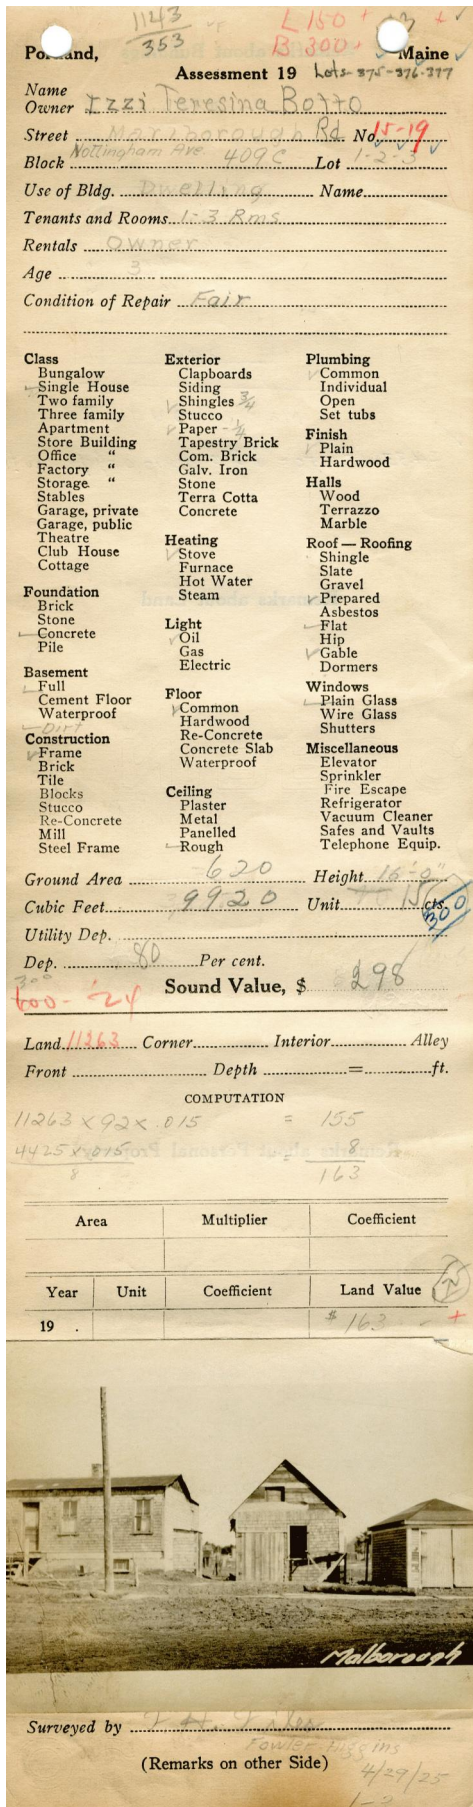 1143
353
L 150 +
B 300 +
Portland, Maine
Assessment 19 Lots-375-376-377
Name
Owner Izzi Teresina Botto
Street Marlborough Rd No. 15-19
Nottingham Ave.
Block 409C Lot 1-2-3
Use of Bldg. Dwelling Name
Tenants and Rooms 1-3 Rms
Rentals Owner
Age 3
Condition of Repair Fair
Class
Bungalow
Single House
Two family
Three family
Apartment
Store Building
Office "
Factory "
Storage "
Stables
Garage, private
Garage, public
Theatre
Club House
Cottage
Foundation
Brick
Stone
Concrete
Pile
Basement
Full
Cement Floor
Waterproof
Dirt
Construction
Frame
Brick
Tile
Blocks
Stucco
Re-Concrete
Mill
Steel Frame
Exterior
Clapboards
Siding
Shingles 3/4
Stucco
Paper - 1/4
Tapestry Brick
Com. Brick
Galv. Iron
Stone
Terra Cotta
Concrete
Heating
Stove
Furnace
Hot Water
Steam
Light
Oil
Gas
Electric
Floor
Common
Hardwood
Re-Concrete
Concrete Slab
Waterproof
Ceiling
Plaster
Metal
Panelled
Rough
Plumbing
Common
Individual
Open
Set tubs
Finish
Plain
Hardwood
Halls
Wood
Terrazzo
Marble
Roof — Roofing
Shingle
Slate
Gravel
Prepared
Asbestos
Flat
Hip
Gable
Dormers
Windows
Plain Glass
Wire Glass
Shutters
Miscellaneous
Elevator
Sprinkler
Fire Escape
Refrigerator
Vacuum Cleaner
Safes and Vaults
Telephone Equip.
Ground Area 620 Height 16'-0"
Cubic Feet 9920 Unit 15 cts.
300
Utility Dep.
Dep. 80 Per cent.
300
Sound Value, $ 298
600- '24
Land 11263 Corner Interior Alley
Front Depth = ft.
COMPUTATION
11263 x 92 x .015 = 155
4425 x .015 = 8
8 163
Area Multiplier Coefficient
Year Unit Coefficient Land Value
19 . $ 163 +
Malborough
Surveyed by
Fowler Higgins
(Remarks on other Side)
4/29/25
1-3